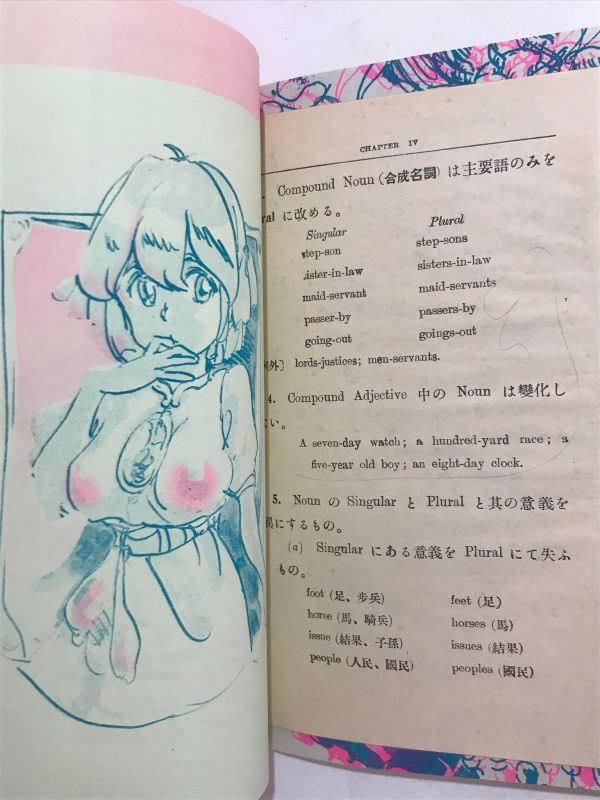 CHAPTER IV
Compound Noun (合成名詞) は主要語のみを
ral に改める。
Singular Plural
step-son step-sons
ister-in-law sisters-in-law
maid-servant maid-servants
passer-by passers-by
going-out goings-out
外〕 lords-justices; men-servants.
4. Compound Adjective 中の Noun は變化し
い。
A seven-day watch; a hundred-yard race; a
five-year old boy; an eight-day clock.
5. Noun の Singular と Plural と其の意義を
異にするもの。
(a) Singular にある意義を Plural にて失ふ
もの。
foot (足、步兵) feet (足)
horse (馬、騎兵) horses (馬)
issue (結果、子孫) issues (結果)
people (人民、國民) peoples (國民)